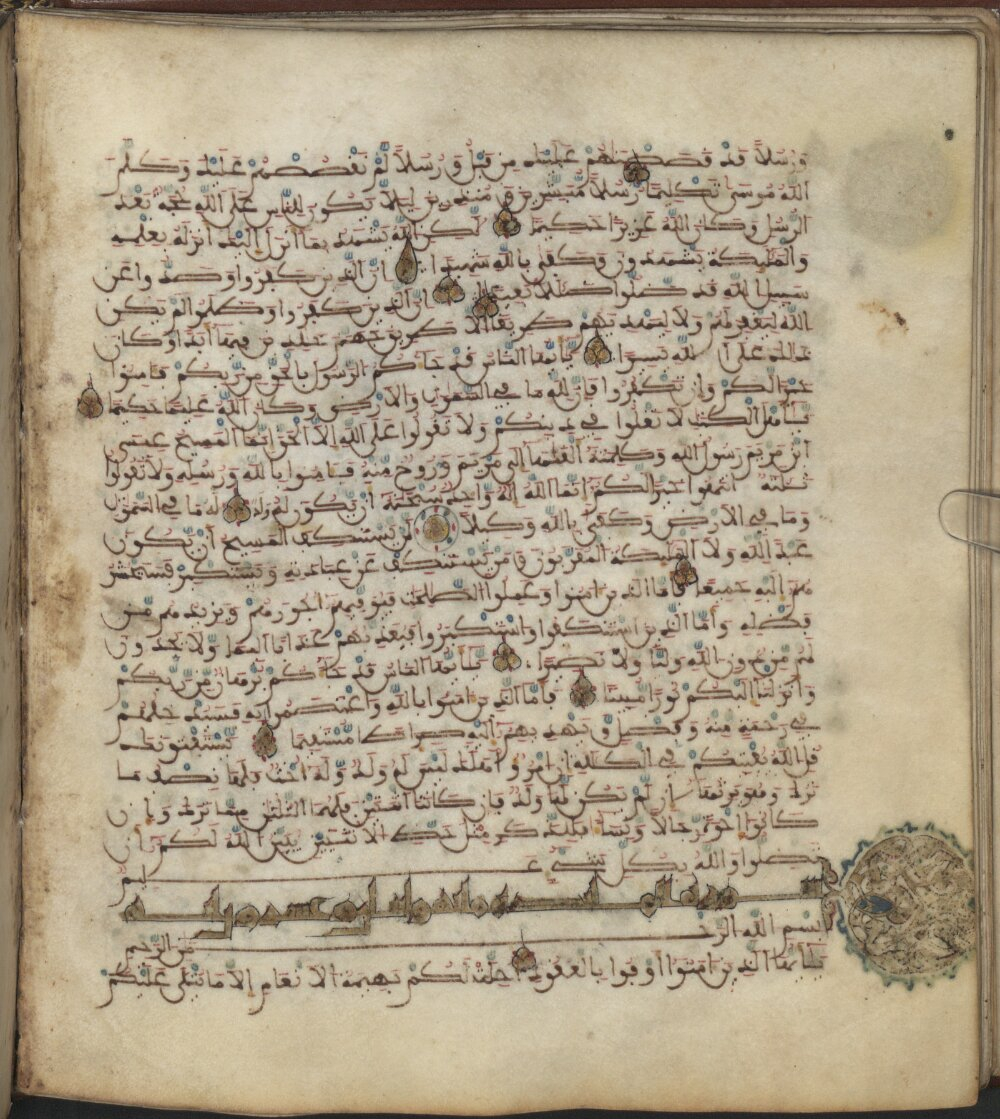 ورسلا قد قصصنهم عليك من قبل ورسلا لم نقصصهم عليك وكلم
الله موسى تكليما رسلا مبشرين ومنذرين ليلا يكون للناس على الله حجة بعد
الرسل وكان الله عزيزا حكيما لكن الله يشهد بما أنزل إليك أنزله بعلمه
والمليكة يشهدون وكفى بالله شهيدا إن الذين كفروا وصدوا عن
سبيل الله قد ضلوا ضللا بعيدا إن الذين كفروا وظلموا لم يكن
الله ليغفر لهم ولا ليهديهم طريقا إلا طريق جهنم خلدين فيها أبدا وكان
ذلك على الله يسيرا يأيها الناس قد جاءكم الرسول بالحق من ربكم فـامنوا
خيرا لكم وإن تكفروا فإن لله ما في السموت والأرض وكان الله عليما حكيما
يأهل الكتب لا تغلوا في دينكم ولا تقولوا على الله إلا الحق إنما المسيح عيسى
ابن مريم رسول الله وكلمته ألقيها إلى مريم وروح منه فـامنوا بالله ورسله ولا تقولوا
ثلثة انتهوا خيرا لكم إنما الله إله واحد سبحنه أن يكون له ولد له ما في السموت
وما في الأرض وكفى بالله وكيلا لن يستنكف المسيح أن يكون
عبدا لله ولا المليكة المقربون ومن يستنكف عن عبادته ويستكبر فسيحشر
هم إليه جميعا فأما الذين ءامنوا وعملوا الصلحت فيوفيهم أجورهم ويزيدهم من
فضله وأما الذين استنكفوا واستكبروا فيعذبهم عذابا أليما ولا يجدون
لهم من دون الله وليا ولا نصيرا يأيها الناس قد جاءكم برهن من ربكم
وأنزلنا إليكم نورا مبينا فأما الذين ءامنوا بالله واعتصموا به فسيدخلهم
في رحمة منه وفضل ويهديهم إليه صرطا مستقيما يستفتونك
قل الله يفتيكم في الكللة إن امرؤا هلك ليس له ولد وله أخت فلها نصف ما
ترك وهو يرثها إن لم يكن لها ولد فإن كانتا اثنتين فلهما الثلثن مما ترك وإن
كانوا إخوة رجالا ونساء فللذكر مثل حظ الأنثيين يبين الله لكم أن
تضلوا والله بكل شيء عـ
ليم
سورة المائدة مائة وعشرون اية
بسم الله الرحـ
من الرحيم
يأيها الذين ءامنوا أوفوا بالعقود أحلت لكم بهيمة الأنعام إلا ما يتلى عليكم